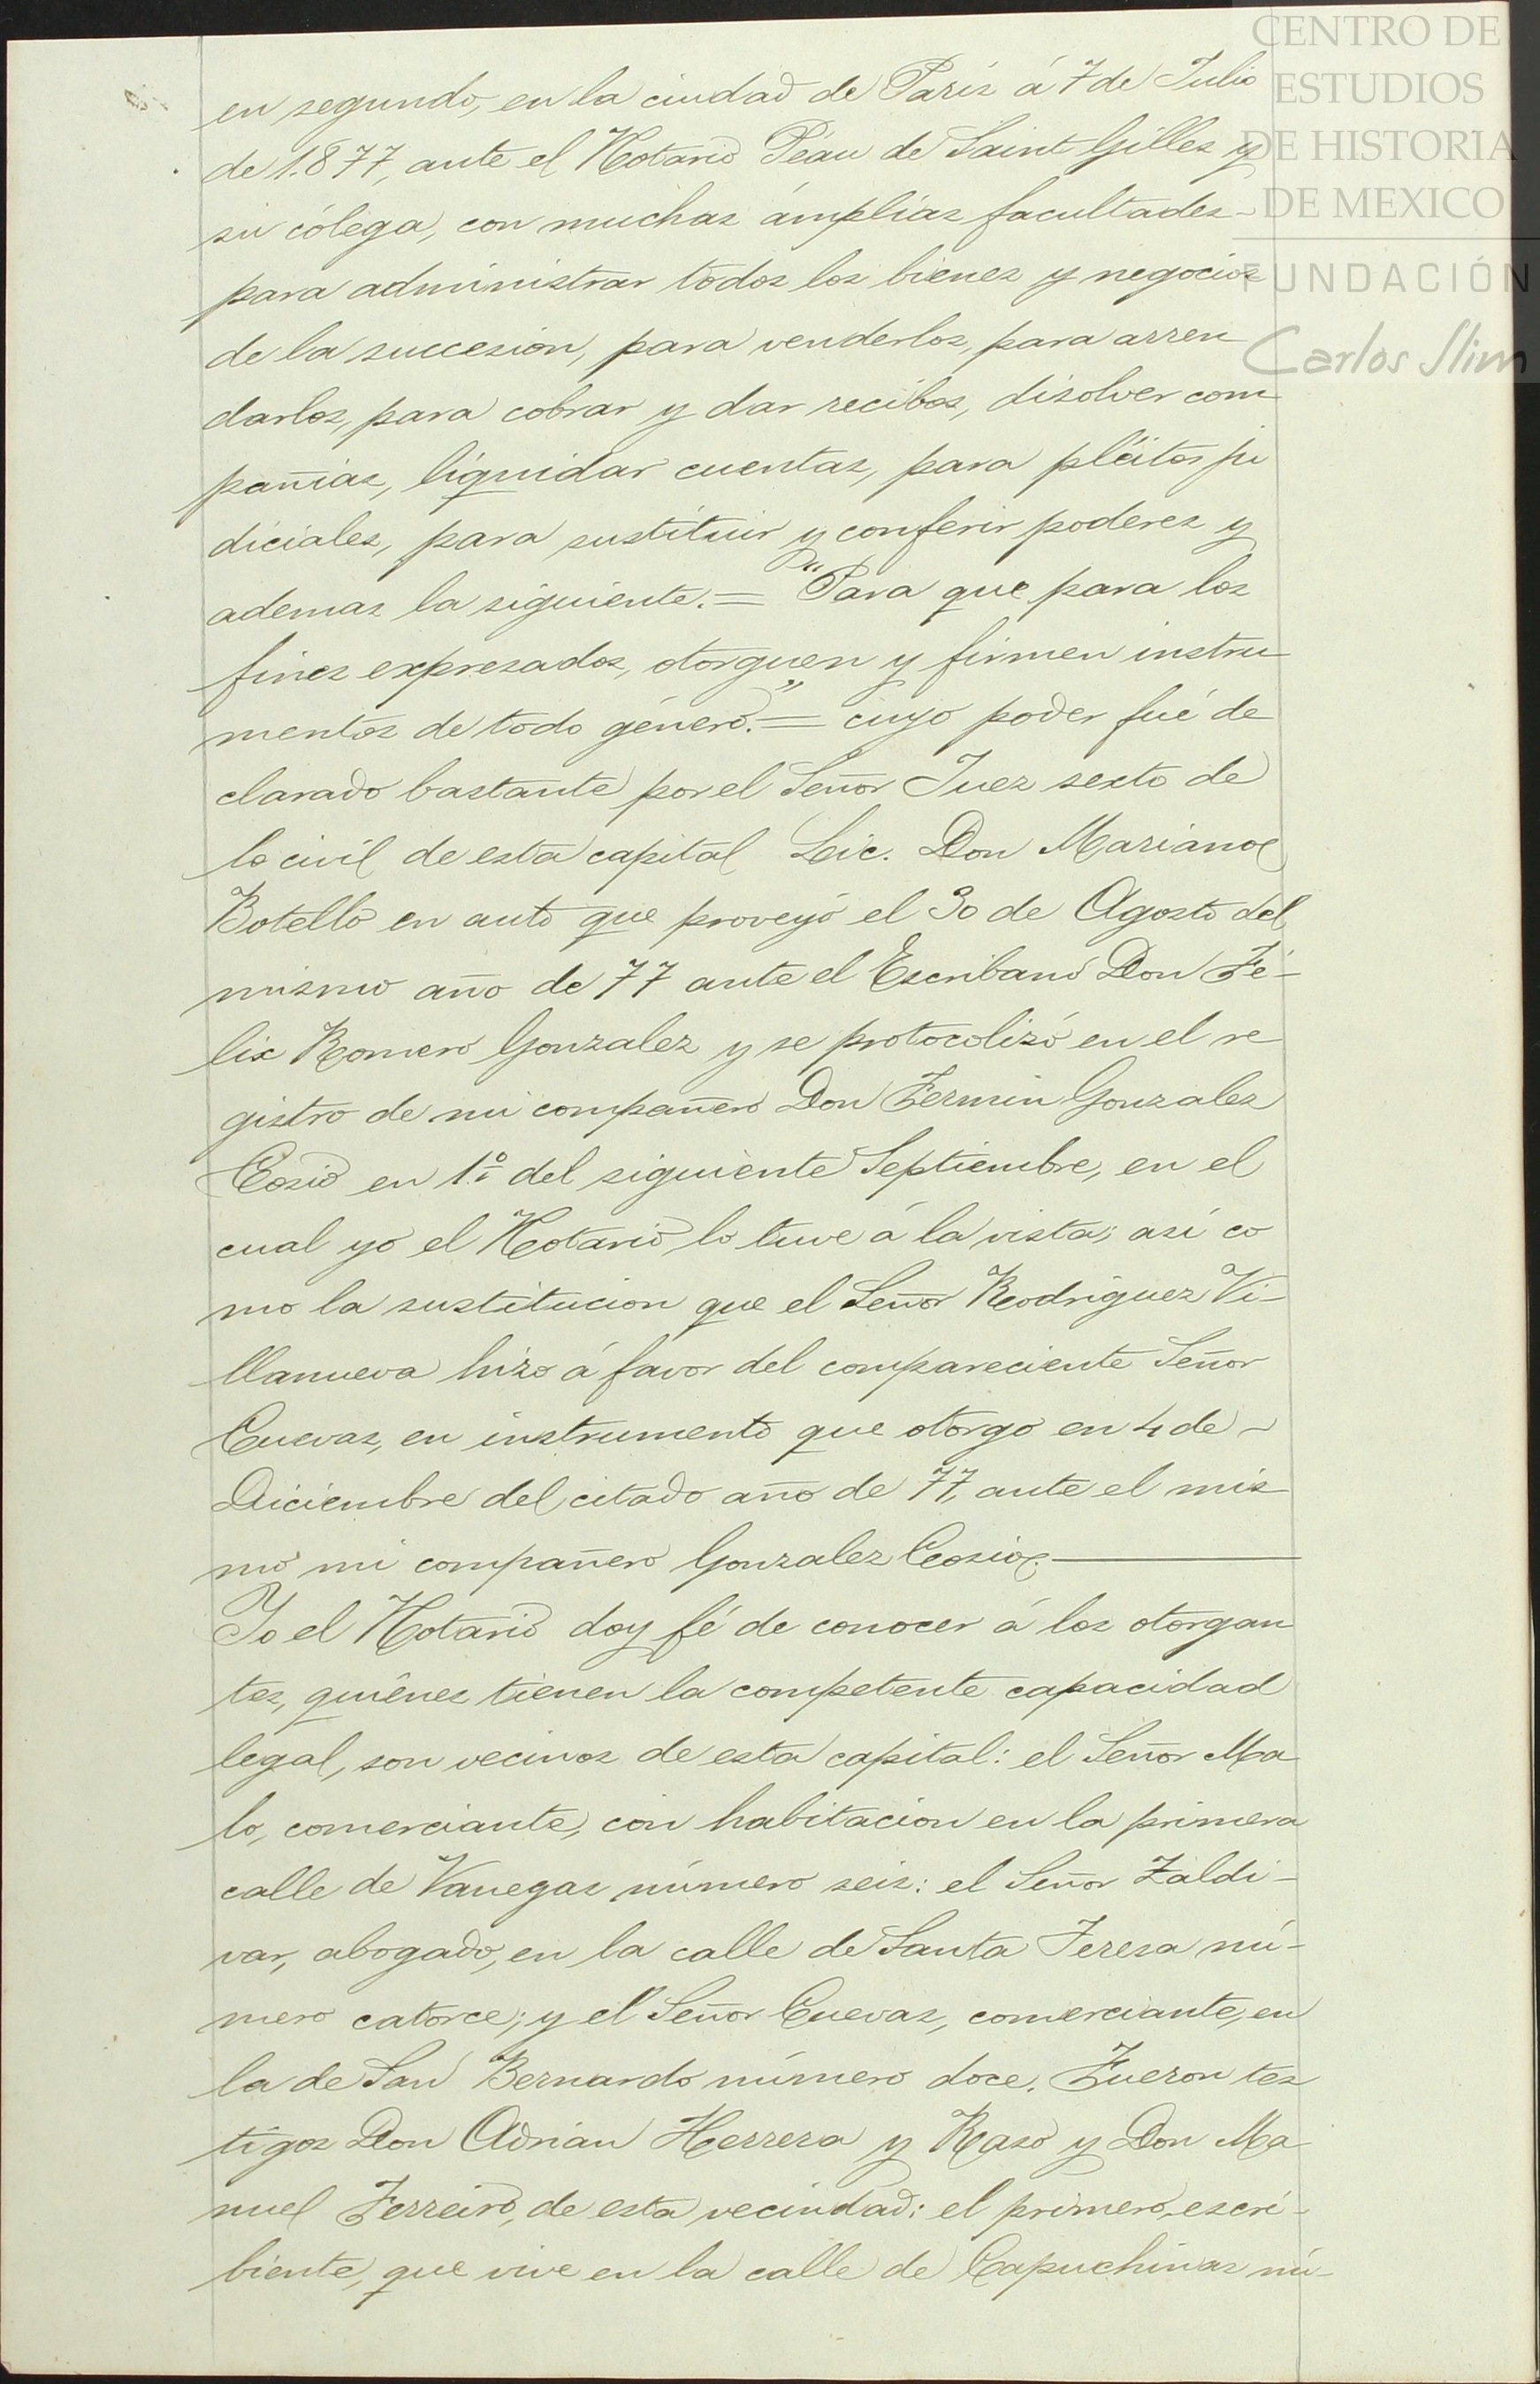 CENTRO DE
ESTUDIOS
DE HISTORIA
DE MEXICO
FUNDACIÓN
Carlos Slim
en segundo, en la ciudad de Paris á 7 de Julio
de 1.877, ante el Notario Péau de Saint Gilles y
su cólega, con muchas ámplias facultades
para administrar todos los bienes y negocios
de la succesion, para venderlos, para arren
darlos, para cobrar y dar recibos, disolver com
pañias, liquidar cuentas, para pléitos ju
diciales, para sustituir y conferir poderes y
ademas la siguiente.= "Para que para los
fines expresados, otorguen y firmen instru
mentos de todo género."= cuyo poder fué de
clarado bastante por el Señor Juez sexto de
lo civil de esta capital Lic. Don Mariano
Botello en auto que proveyó el 30 de Agosto del
mismo año de 77 ante el Escribano Don Fé-
lix Romero Gonzalez y se protocolizó en el re
gistro de mi compañero Don Fermin Gonzalez
Cosio en 1º del siguiente Septiembre, en el
cual yo el Notario lo tuve á la vista; así co
mo la sustitucion que el Señor Rodriguez Vi-
llanueva hizo á favor del compareciente Señor
Cuevas, en instrumento que otorgo en 4 de
Diciembre del citado año de 77, ante el mis
mo mi compañero Gonzalez Cosio.
Yo el Notario doy fé de conocer á los otorgan
tes, quiénes tienen la competente capacidad
legal, son vecinos de esta capital: el Señor Ma
lo, comerciante, con habitacion en la primera
calle de Vanegas número seis: el Señor Zaldi-
var, abogado, en la calle de Santa Teresa nú-
mero catorce; y el Señor Cuevas, comerciante, en
la de San Bernardo número doce. Fueron tes
tigos Don Adrian Herrera y Raso y Don Ma
nuel Ferreiro, de esta vecindad: el primero, escri-
biente, que vive en la calle de Capuchinas nú-